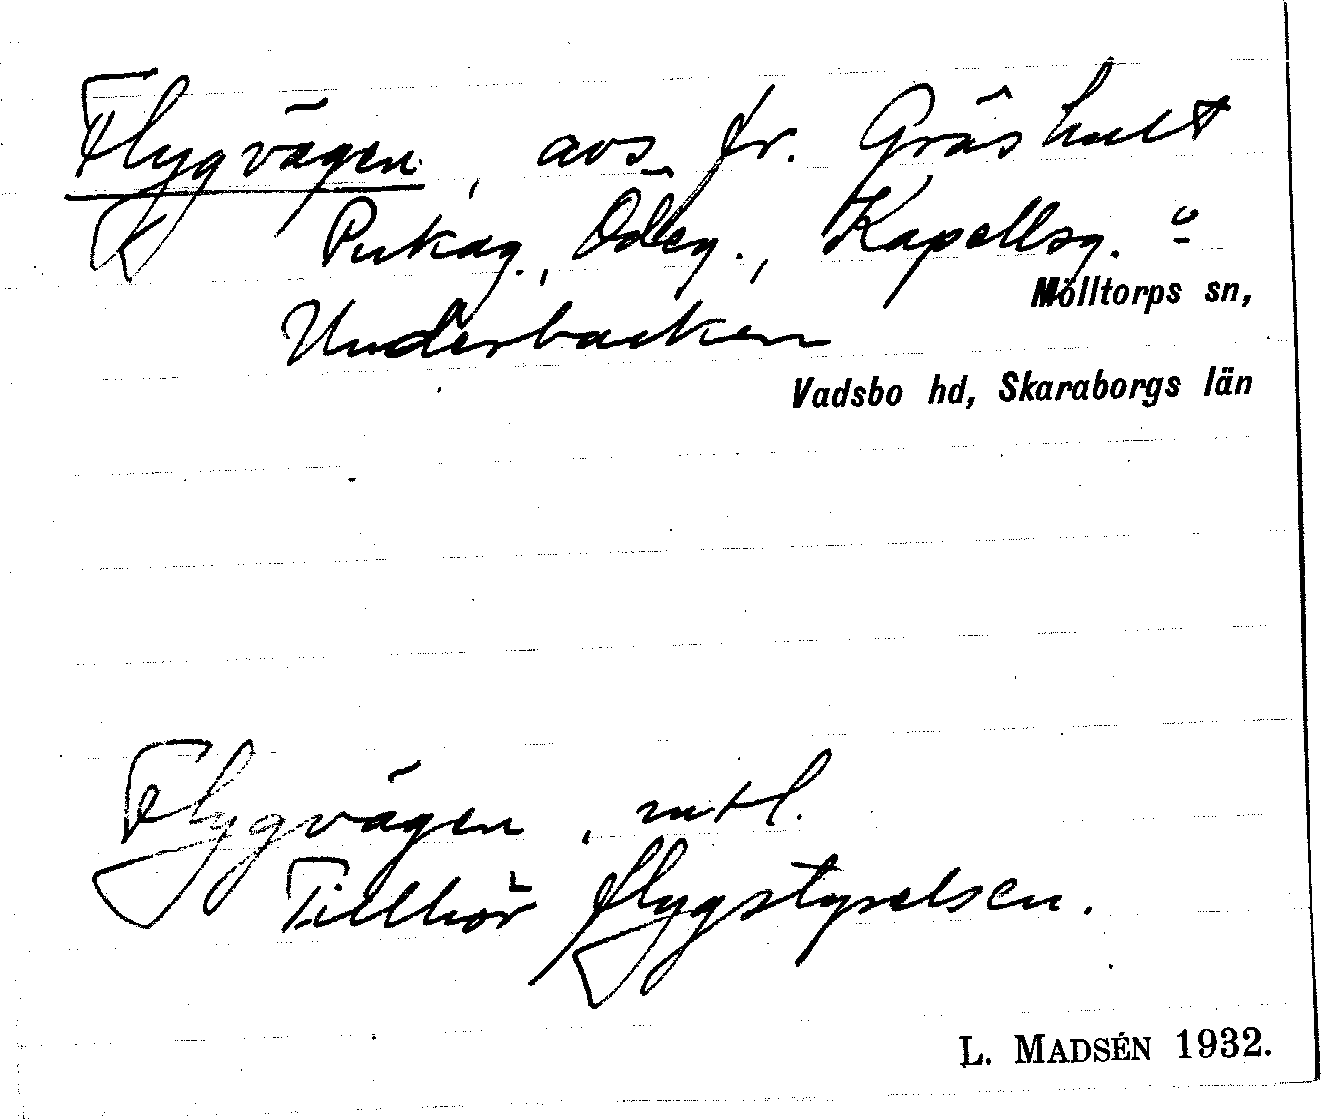 Flygvägen, avs. fr. Gräshult
Pukag., Ödeg., Kapellsg. o
Mölltorps sn,
Underbacken
Vadsbo hd, Skaraborgs län
Flygvägen, mtl.
Tillhör flygstyrelsen.
L. MADSÉN 1932.